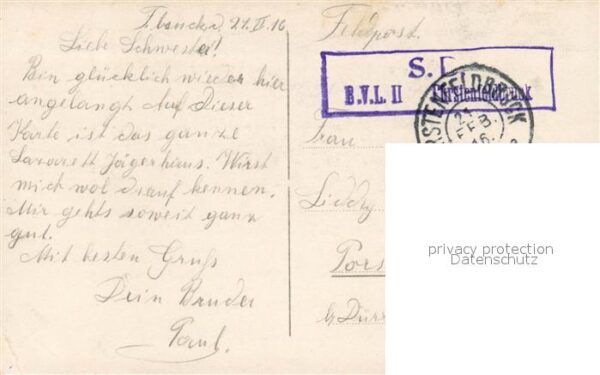 Fbruck, 21.II.16
Liebe Schwester!
Ben glücklich wieder hier
angelangt Auf Dieser
Karte ist das ganze
Lazarett Jägerhaus. Wirst
mich wol drauf kennen.
Mir gehts soweit ganz
gut.
Mit besten Gruß
Dein Bruder
Paul.
Feldpost.
S. B.
B.V.L. II Fürstenfeldbruck
FÜRSTENFELDBRUCK
21
FEB.
16
Frau
Liddy
Pors
b/Dürr
privacy protection
Datenschutz